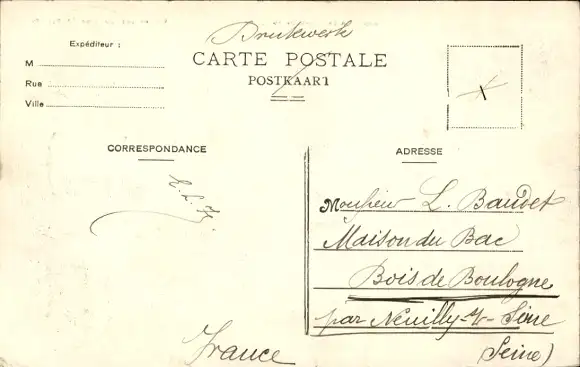 Drukwerk
CARTE POSTALE
POSTKAART
Expéditeur :
M
Rue
Ville
CORRESPONDANCE
ADRESSE
Monsieur L. Baudet
Maison du Bac
Bois de Boulogne
par Neuilly-s-Seine
(Seine)
France